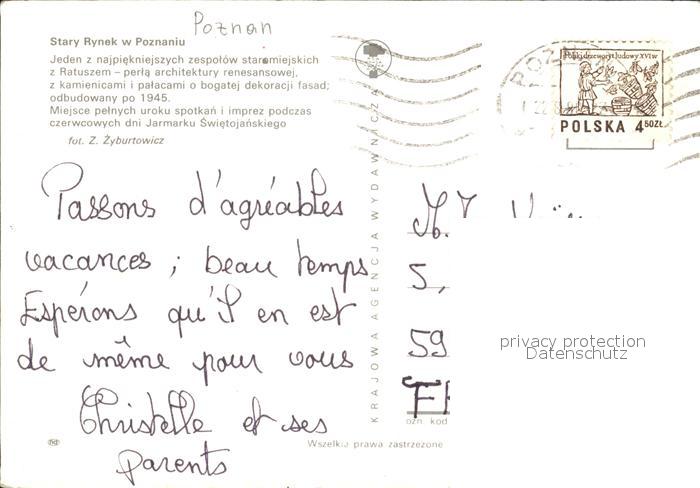 Poznan
Stary Rynek w Poznaniu
Jeden z najpiękniejszych zespołów staromiejskich
z Ratuszem – perłą architektury renesansowej,
z kamienicami i pałacami o bogatej dekoracji fasad;
odbudowany po 1945.
Miejsce pełnych uroku spotkań i imprez podczas
czerwcowych dni Jarmarku Świętojańskiego
fot. Z. Żyburtowicz
Passons d'agréables
vacances ; beau temps
Espérons qu'il en est
de même pour vous
Christelle et ses
parents
KRAJOWA AGENCJA WYDAWNICZA
Wszelkie prawa zastrzeżone
Polski drzeworyt ludowy XVI w
POLSKA 4.50 ZŁ
POZ
5,
59
ozn. kod
privacy protection
Datenschutz